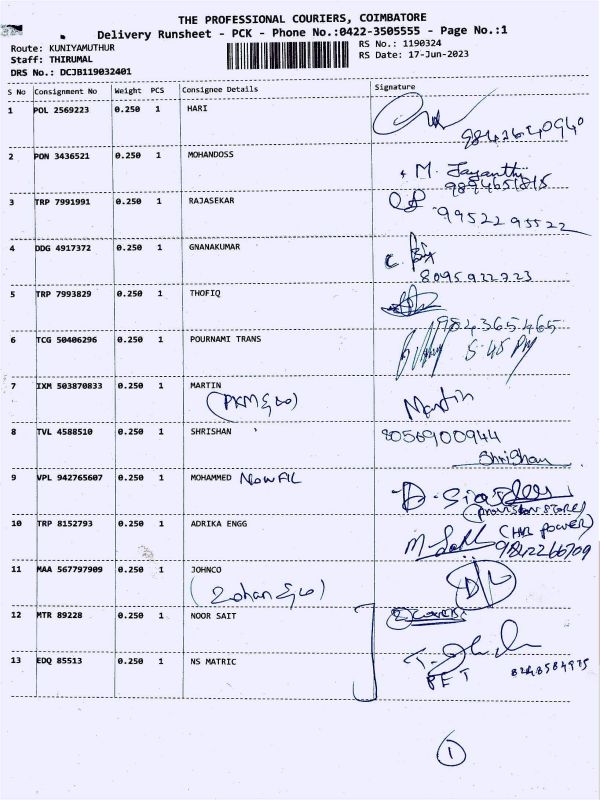 THE PROFESSIONAL COURIERS, COIMBATORE
Delivery Runsheet - PCK - Phone No.:0422-3505555 - Page No.:1
Route: KUNIYAMUTHUR RS No.: 1190324
Staff: THIRUMAL RS Date: 17-Jun-2023
DRS No.: DCJB119032401
S No Consignment No Weight PCS Consignee Details Signature
1 POL 2569223 0.250 1 HARI
2 PON 3436521 0.250 1 MOHANDOSS
M. Jayanthi
3 TRP 7991991 0.250 1 RAJASEKAR
9952295522
4 DDG 4917372 0.250 1 GNANAKUMAR
5 TRP 7993829 0.250 1 THOFIQ
984365465
6 TCG 50406296 0.250 1 POURNAMI TRANS
5.45 PM
7 IXM 503870833 0.250 1 MARTIN
Martin
8 TVL 4588510 0.250 1 SHRISHAN 8056900944
Shrishan
9 VPL 942765607 0.250 1 MOHAMMED
(PROVISION STORE)
10 TRP 8152793 0.250 1 ADRIKA ENGG
9842266709
11 MAA 567797909 0.250 1 JOHNCO
12 MTR 89228 0.250 1 NOOR SAIT
13 EDQ 85513 0.250 1 NS MATRIC
PET
1